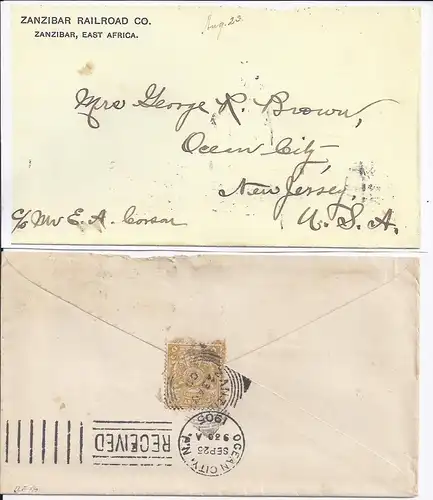 ZANZIBAR RAILROAD CO.
ZANZIBAR, EAST AFRICA.
Aug. 23.
Mrs George R. Brown,
Ocean City,
New Jersey,
U. S. A.
c/o Mr E. A. Corson
RECEIVED
OCEAN CITY, N.J.
SEP 23
9 30 A
1905